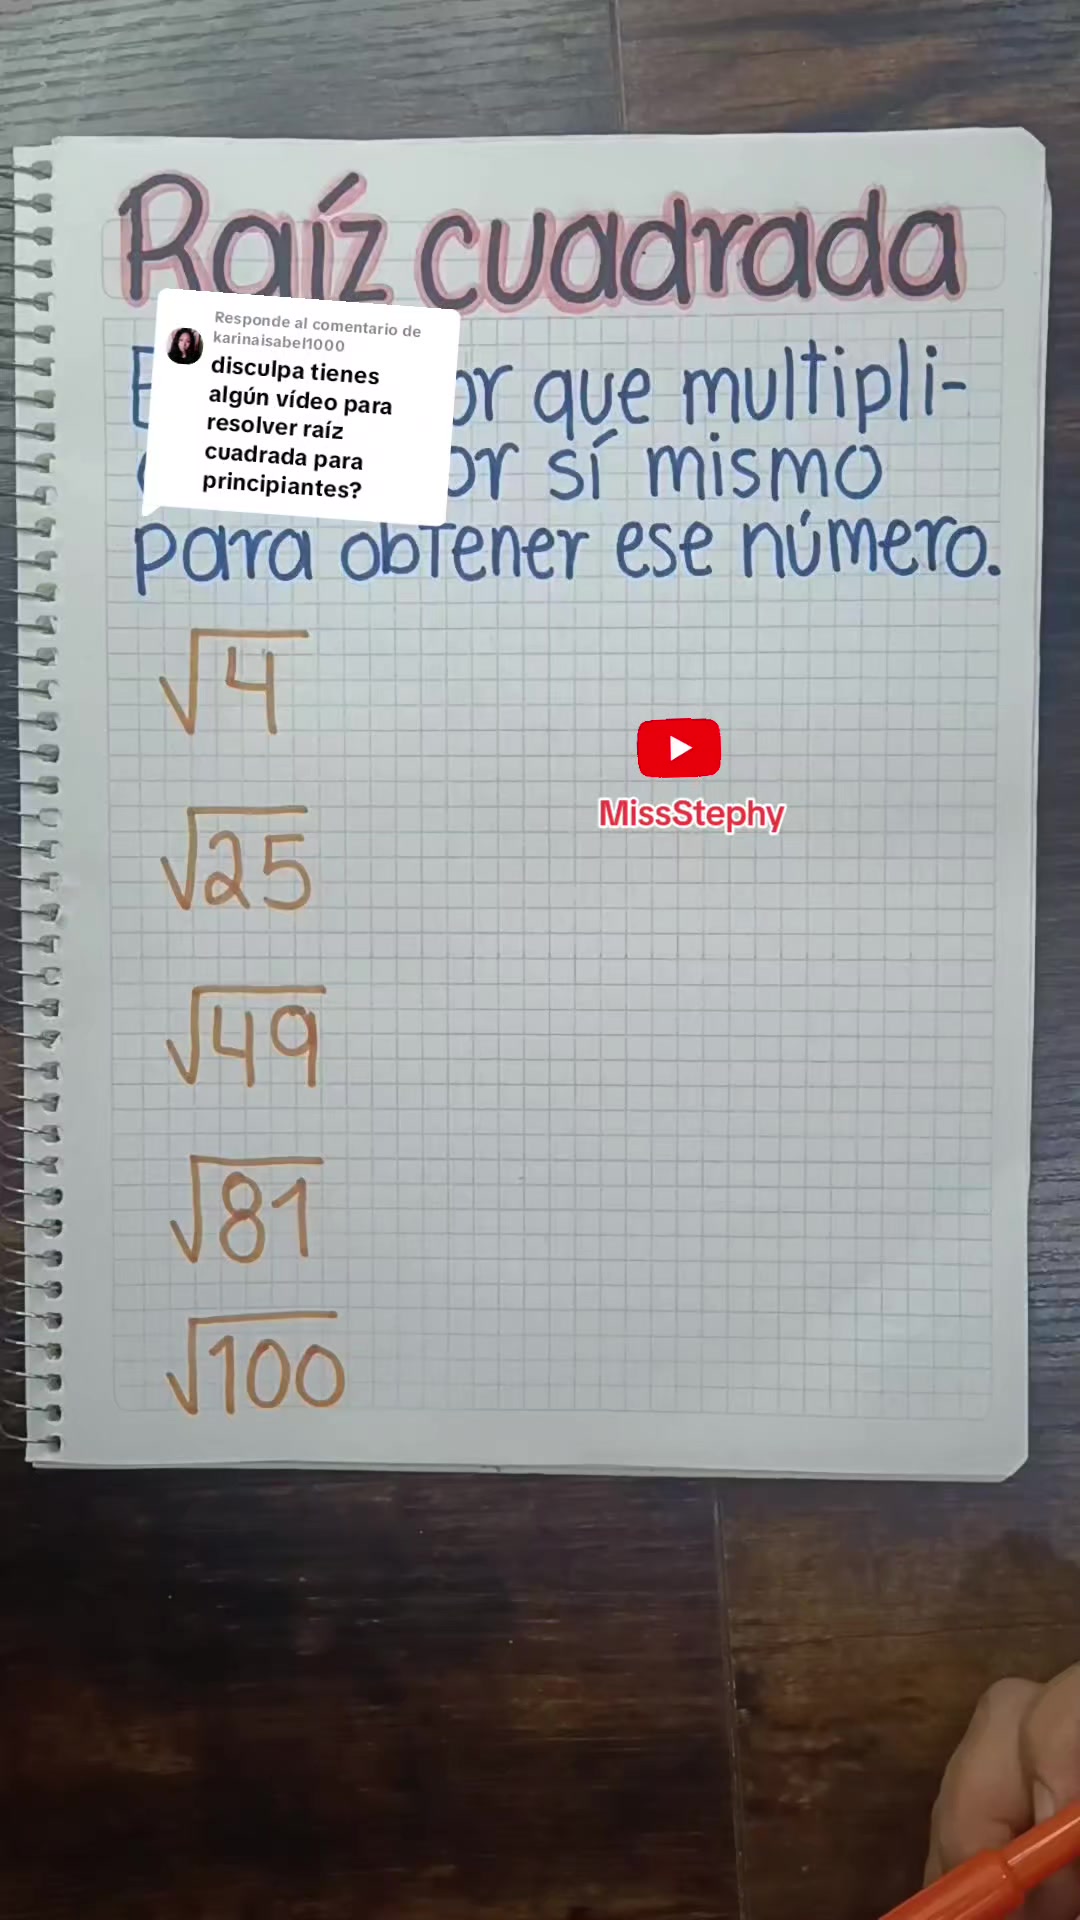 Raíz cuadrada
Responde al comentario de
karinaisabel1000
disculpa tienes
algún vídeo para
resolver raíz
cuadrada para
principiantes?
que multipli-
sí mismo
para obtener ese número.
√4
MissStephy
√25
√49
√81
√100